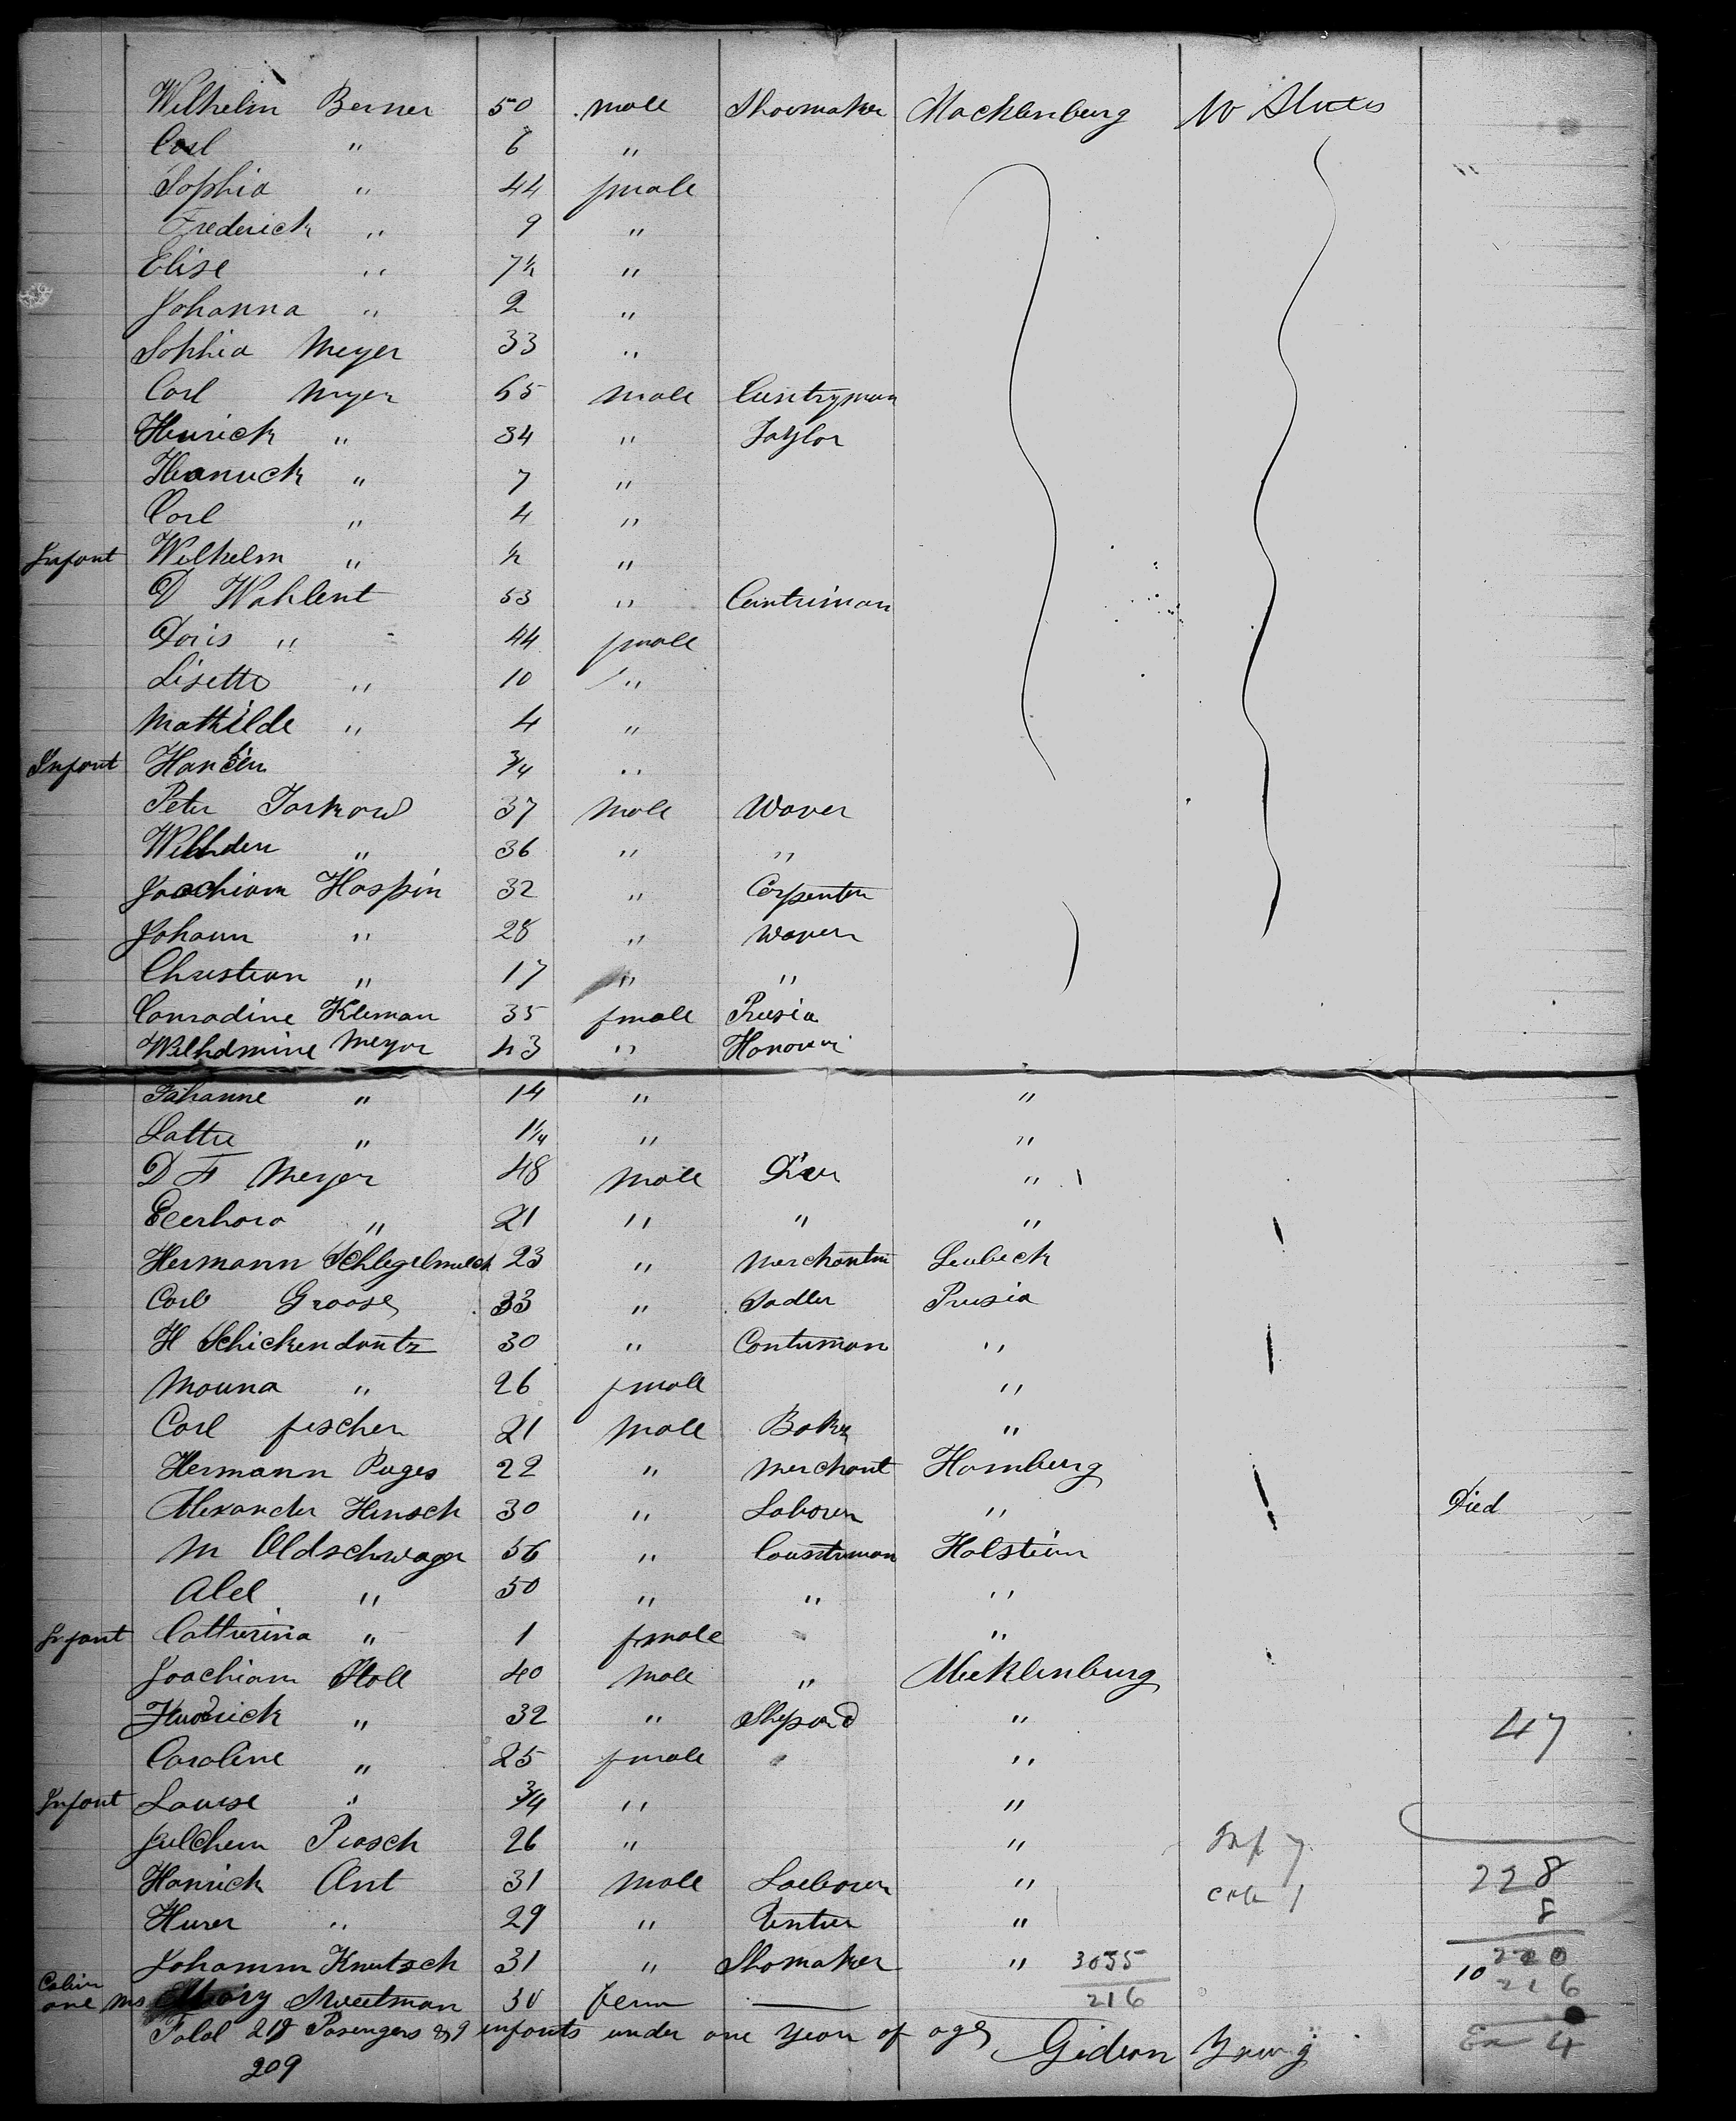 Wilhelm Berner 50 male Shoemaker Macklenburg U States
Carl " 6 "
Sophia " 44 fmale
Frederick " 9 "
Elise " 7½ "
Johanna " 2 "
Sophia Meyer 33 "
Carl Myer 65 male Cuntryman
Henrick " 34 " Taylor
" 7 "
Carl " 4 "
Infant Wilhelm " ½ "
D Wahlent 53 " Cuntriman
Doris " 44 fmale
Lisette " 10 "
Mathilde " 4 "
Infant ¾ "
Peter 37 male Waver
" 36 " "
Joachiam Haspin 32 " Carpenter
Johann " 28 " Waver
Christian " 17 " "
Conradine Kleman 35 fmale Prusia
Wilhelmine Meyer 43 " Hanover
Johanne " 14 " "
" 1¼ " "
D F Meyer 48 male "
" 21 " " "
Hermann Schlegelmilch 23 " Lubeck
Carl Groose 33 " Sadler Prusia
H Schickendantz 30 " Contriman "
" 26 fmale "
Carl fischer 21 male Baker "
Hermann Pages 22 " Merchant Hamburg
Alexander Hensch 30 " Laborer " Died
M Oldschwager 56 " Holstein
Abel " 50 " " "
Infant Catherina " 1 fmale "
Joachiam Holl 40 male " Mecklenburg
" 32 " Sheperd " 47
Caroline " 25 fmale "
Infant Louise " ¾ " "
Julchen Prosch 26 " " Inf 7
Hanrick Ant 31 male Laeborer " Cab 1 228
" 29 " " 8
Johamm Knutsch 31 " Shomaker " 3055 220
Cabin one Ms Mary Sweetman 30 fem — 216 10 216
Total 218 Pasengers & 9 infants under one Year of age Gideon Young Ex 4
209